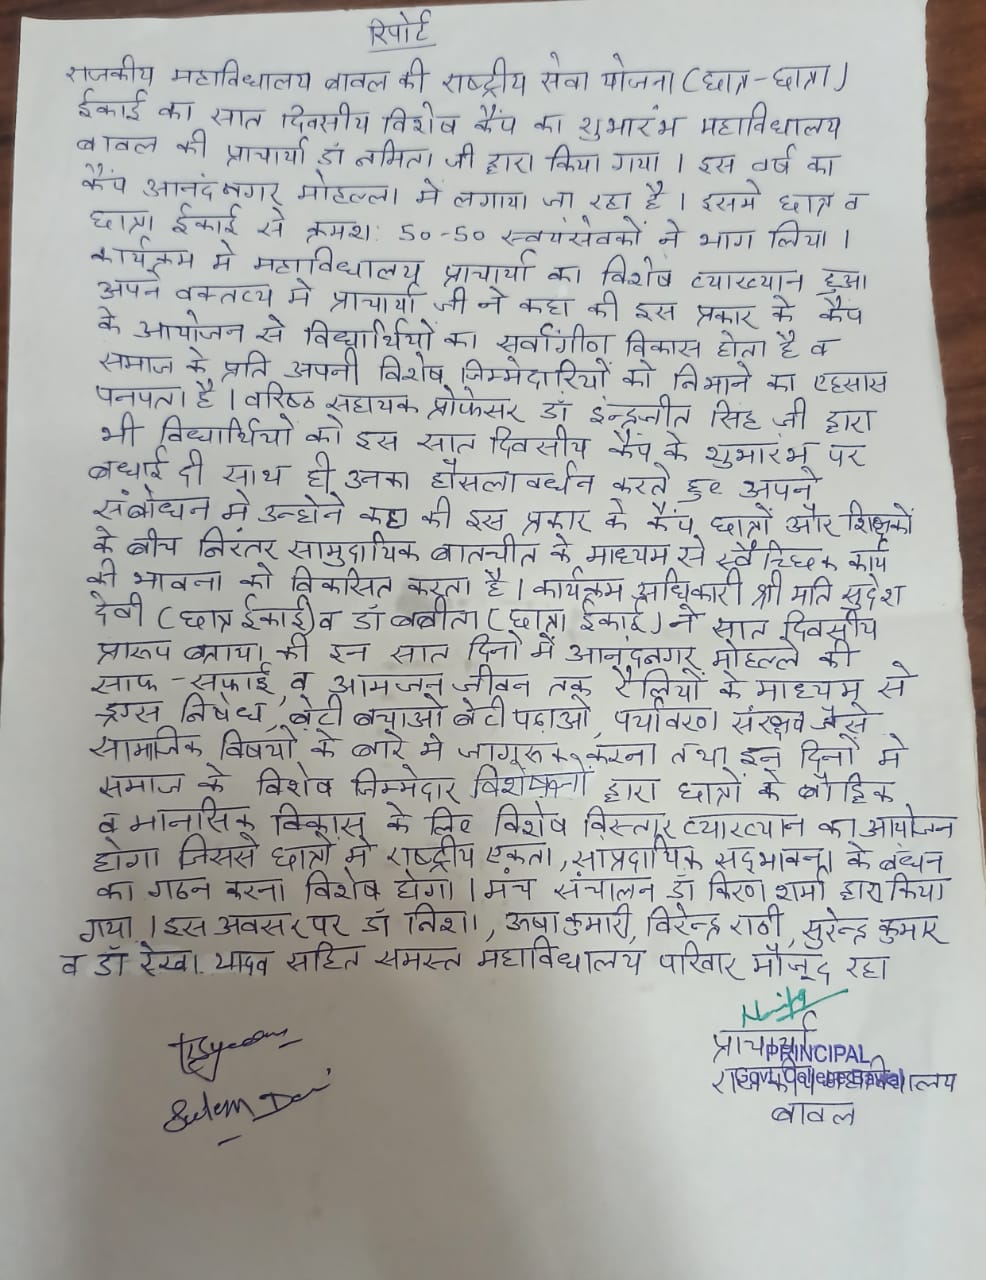 रिपोर्ट
राजकीय महाविधालय बावल की राष्ट्रीय सेवा योजना (छात्र-छात्रा)
ईकाई का सात दिवसीय विशेष कैंप का शुभारंभ महाविधालय
बावल की प्राचार्या डॉ नमिता जी द्वारा किया गया । इस वर्ष का
कैंप आनंदनगर मोहल्ला में लगाया जा रहा है । इसमे छात्र व
छात्रा ईकाई से क्रमश: 50-50 स्वयंसेवकों ने भाग लिया ।
कार्यक्रम मे महाविधालय प्राचार्या का विशेष व्याख्यान हुआ
अपने वक्तव्य मे प्राचार्या जी ने कहा की इस प्रकार के कैंप
के आयोजन से विद्यार्थियों का सर्वांगीण विकास होता है व
समाज के प्रति अपनी विशेष जिम्मेदारियों को निभाने का एहसास
पनपता है । वरिष्ठ सहायक प्रोफेसर डॉ इन्द्रजीत सिंह जी द्वारा
भी विधार्थियो को इस सात दिवसीय कैंप के शुभारंभ पर
बधाई दी साथ ही उनका हौसलावर्धन करते हुए अपने
संबोधन मे उन्होने कहा की इस प्रकार के कैंप छात्रों और शिक्षकों
के बीच निरंतर सामुदायिक बातचीत के माध्यम से स्वैच्छिक कार्य
की भावना को विकसित करता है । कार्यक्रम अधिकारी श्री मति सुदेश
देवी (छात्र ईकाई) व डॉ बबीता (छात्रा ईकाई) ने सात दिवसीय
प्रारूप बताया की इन सात दिनो में आनंदनगर मोहल्ले की
साफ-सफाई व आमजन जीवन तक रैलियों के माध्यम से
ड्रग्स निषेध, बेटी बचाओ बेटी पढाओ, पर्यावरण संरक्षण जैसे
सामाजिक विषयो के बारे मे जागरूक करना तथा इन दिनो मे
समाज के विशेष जिम्मेदार विशेषज्ञों द्वारा छात्रों के बौद्विक
व मानसिक विकास के लिए विशेष विस्तार व्याख्यान का आयोजन
होगा जिससे छात्रों मे राष्ट्रीय एकता, सांप्रदायिक सद्भावना के बंधन
का गठन करना विशेष होगा । मंच संचालन डॉ किरण शर्मा द्वारा किया
गया । इस अवसर पर डॉ निशा, ऊषा कुमारी, विरेन्द्र राठी, सुरेन्द्र कुमार
व डॉ रेखा यादव सहित समस्त महाविधालय परिवार मौजूद रहा
प्राचार्या
PRINCIPAL
राजकीय महाविधालय
बावल